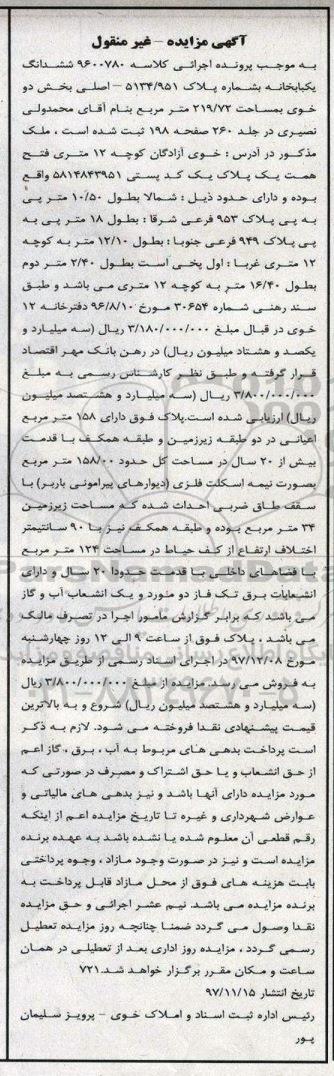 آگهی مزایده - غیر منقول
به موجب پرونده اجرائی کلاسه ۹۶۰۰۷۸۰ ششدانگ
یکبابخانه بشماره پلاک ۵۱۳۴/۹۵۱ – اصلی بخش دو
خوی بمساحت ۲۱۹/۷۲ متر مربع بنام آقای محمدولی
نصیری در جلد ۲۶۰ صفحه ۱۹۸ ثبت شده است ، ملک
مذکور در آدرس : خوی آزادگان کوچه ۱۲ متری فتح
همت یک پلاک یک کد پستی ۵۸۱۴۸۴۳۹۵۱ واقع
بوده و دارای حدود ذیل : شمالا بطول ۱۰/۵۰ متر پی
به پی پلاک ۹۵۳ فرعی شرقا : بطول ۱۸ متر پی به
پی پلاک ۹۴۹ فرعی جنوبا : بطول ۱۲/۱۰ متر به کوچه
۱۲ متری غربا : اول پخی است بطول ۲/۴۰ متر دوم
بطول ۱۶/۴۰ متر به کوچه ۱۲ متری می باشد و طبق
سند رهنی شماره ۳۰۶۵۴ مورخ ۹۶/۸/۱۰ دفترخانه ۱۲
خوی در قبال مبلغ ۳/۱۸۰/۰۰۰/۰۰۰ ریال (سه میلیارد و
یکصد و هشتاد میلیون ریال) در رهن بانک مهر اقتصاد
قرار گرفته و طبق نظر کارشناس رسمی به مبلغ
۳/۸۰۰/۰۰۰/۰۰۰ ریال (سه میلیارد و هشتصد میلیون
ریال) ارزیابی شده است.پلاک فوق دارای ۱۵۸ متر مربع
اعیانی در دو طبقه زیرزمین و طبقه همکف با قدمت
بیش از ۲۰ سال در مساحت کل حدود ۱۵۸/۰۰ متر مربع
بصورت نیمه اسکلت فلزی (دیوارهای پیرامونی باربر) با
سقف طاق ضربی احداث شده که مساحت زیرزمین
۳۴ متر مربع بوده و طبقه همکف نیز با ۹۰ سانتیمتر
اختلاف ارتفاع از کف حیاط در مساحت ۱۲۴ متر مربع
با فضاهای داخلی با قدمت حدودا ۲۰ سال و دارای
انشعابات برق تک فاز دو مورد و یک انشعاب آب و گاز
می باشد که برابر گزارش مامور اجرا در تصرف مالک
می باشد ، پلاک فوق از ساعت ۹ الی ۱۲ روز چهارشنبه
مورخ ۹۷/۱۲/۰۸ در اجرای اسناد رسمی از طریق مزایده
به فروش می رسد. مزایده از مبلغ ۳/۸۰۰/۰۰۰/۰۰۰ ریال
(سه میلیارد و هشتصد میلیون ریال) شروع و به بالاترین
قیمت پیشنهادی نقدا فروخته می شود. لازم به ذکر
است پرداخت بدهی های مربوط به آب ، برق ، گاز اعم
از حق انشعاب و یا حق اشتراک و مصرف در صورتی که
مورد مزایده دارای آنها باشد و نیز بدهی های مالیاتی و
عوارض شهرداری و غیره تا تاریخ مزایده اعم از اینکه
رقم قطعی آن معلوم شده یا نشده باشد به عهده برنده
مزایده است و نیز در صورت وجود مازاد ، وجوه پرداختی
بابت هزینه های فوق از محل مازاد قابل پرداخت به
برنده مزایده می باشد. نیم عشر اجرائی و حق مزایده
نقدا وصول می گردد ضمنا چنانچه روز مزایده تعطیل
رسمی گردد ، مزایده روز اداری بعد از تعطیلی در همان
ساعت و مکان مقرر برگزار خواهد شد.۷۲۱
تاریخ انتشار ۹۷/۱۱/۱۵
رئیس اداره ثبت اسناد و املاک خوی - پرویز سلیمان
پور